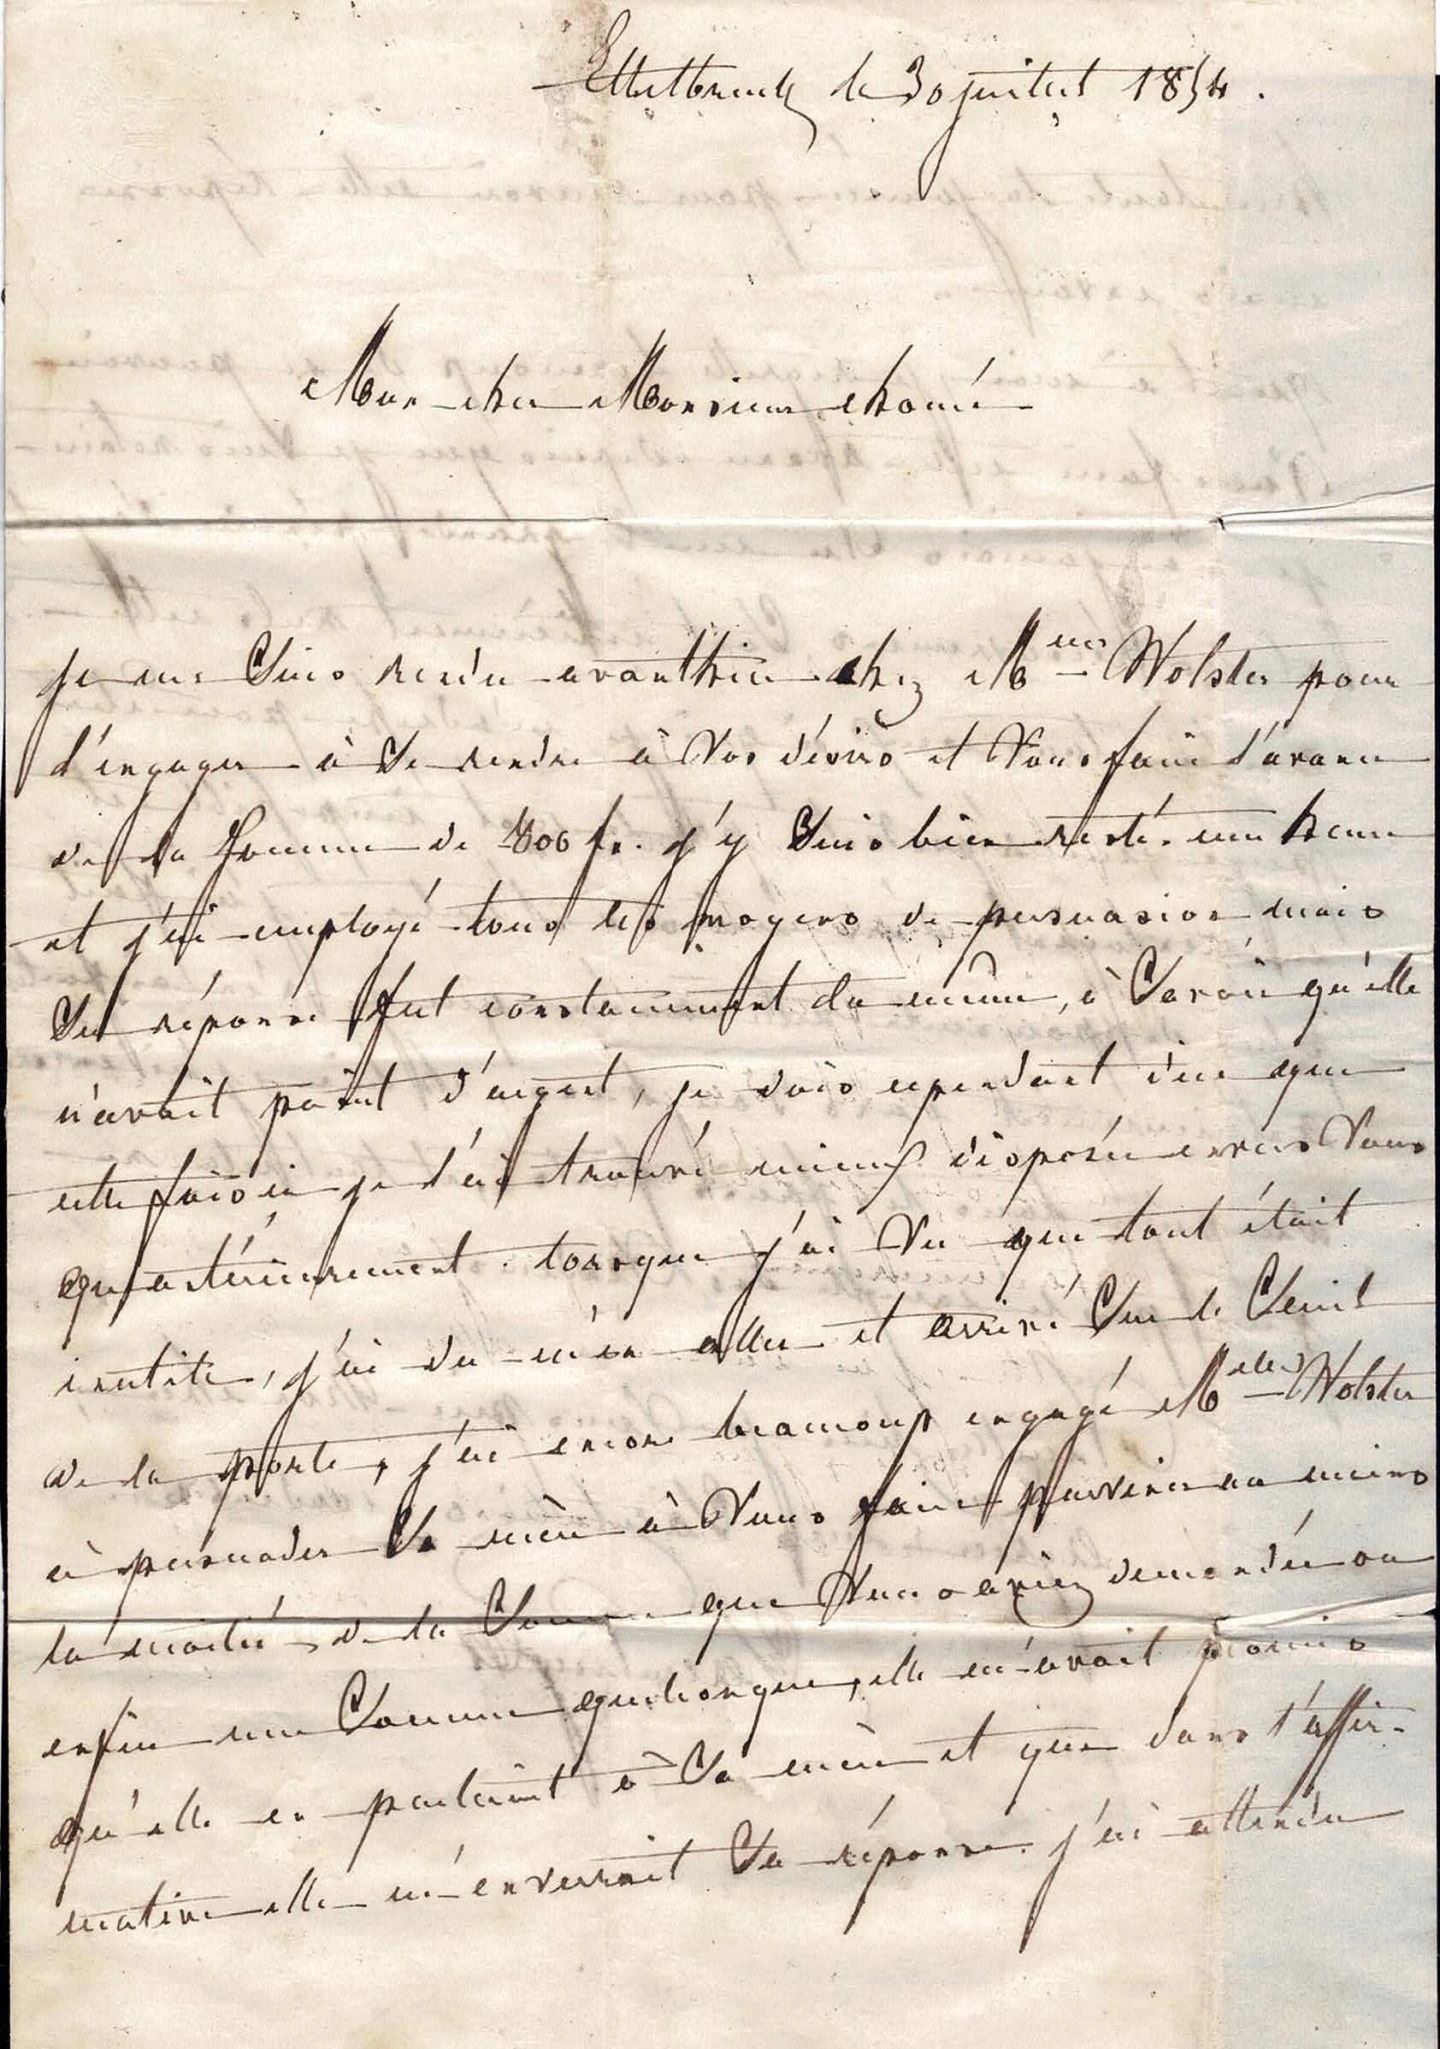 Ettelbruck le 30 juillet 1854.
Mon cher Monsieur
Je me suis rendu avanthier chez Mme Wolster pour
l'engager à se rendre à vos désirs et vous faire l'avance
de la somme de fr. j'y suis bien resté une heure
et j'ai employé tous les moyens de persuasion mais
sa réponse fut constamment la même, à savoir qu'elle
n'avait point d'argent, je dois cependant dire que
cette fois ci je l'ai trouvé mieux disposée envers vous
qu'antérieurement. lorsque j'ai vu que tout était
inutile, j'ai du m'en aller et arrivé sur le seuil
de la porte, j'ai encore beaucoup engagé Melle Wolster
à persuader sa mère à vous faire parvenir au moins
la moitié de la somme que vous aviez demandée ou
enfin une somme quelconque, elle m'avait promis
qu'elle en parlerait à sa mère et que dans l'affir-
mative elle m'enverrait sa réponse. j'ai attendu